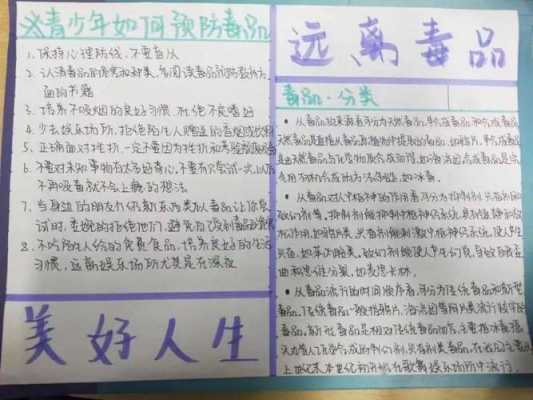 青少年如何预防毒品
1. 保持心理防线，不要盲从
2. 认清毒品的危害和种类，多阅读毒品预防教育方
面的书籍
3. 培养不吸烟的良好习惯，杜绝不良嗜好
4. 少去娱乐场所，拒绝陌生人赠送的香烟或饮料
5. 正确面对挫折，一定不要因为挫折和考验
6. 不要对未知事物有太多好奇心，不要有只尝试一次，以后
不再吸毒就不会上瘾的想法
7. 当身边的朋友
试时，委婉的拒绝他们
8. 不吃陌生人给的食食品，培养良好的生活
习惯，远离娱乐场所尤其是在深夜
美好人生
远离毒品
毒品·分类
• 从毒品的来源看可分为天然毒品，半合成毒品和合成毒品
天然毒品是直接从毒品原植物中提取的毒品，如鸦片，半合成毒品
是由天然毒品与化学物质合成而得，如海洛因合成毒品是完
全用有机合成的方法制造，如冰毒。
• 从毒品对人中枢神经的作用看可分为抑制剂，兴奋剂和
致幻剂等，抑制剂能抑制中枢神经系统，具有镇静和放
松作用，如鸦片类，兴奋剂能刺激中枢神经系统，使人产生
兴奋，如苯丙胺类，致幻剂能使人产生幻觉，导致自我歪
曲和思维分裂，如麦司卡林。
• 从毒品流行的时间顺序看，可分为传统毒品和新型
毒品，传统毒品一般指鸦片、海洛因等阿片类流行较早的
毒品，新型毒品是相对传统毒品而言，主要指冰毒